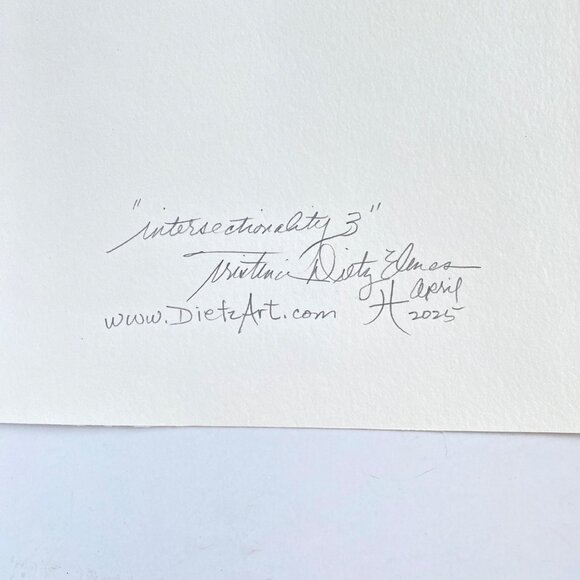 "intersectionality 3"
Tristina Dietz Elmes
www.DietzArt.com April
2025